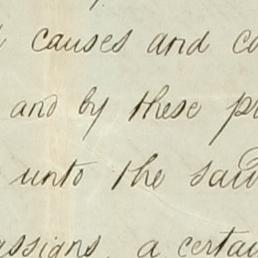 causes and co
and by these pr
unto the said
assigns, a certai